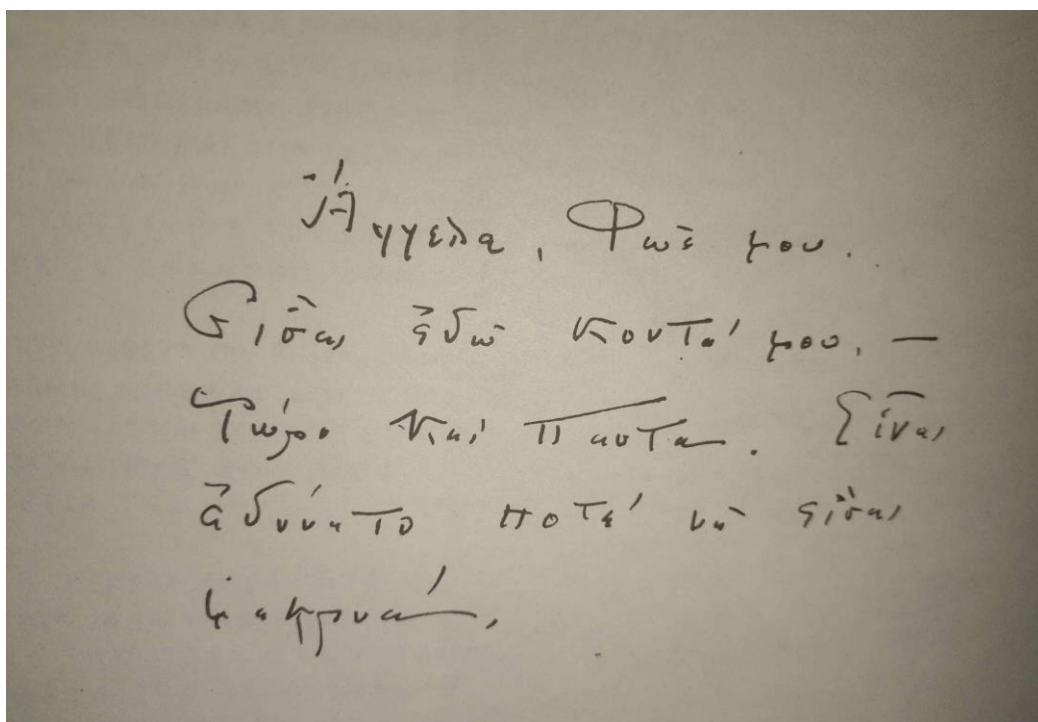 Ἄγγελα, Φῶς μου.
Εἶσαι ἐδῶ κοντά μου, —
Τώρα καὶ Πάντα. Εἶναι
ἀδύνατο ποτέ νὰ εἶσαι
μακρυά.